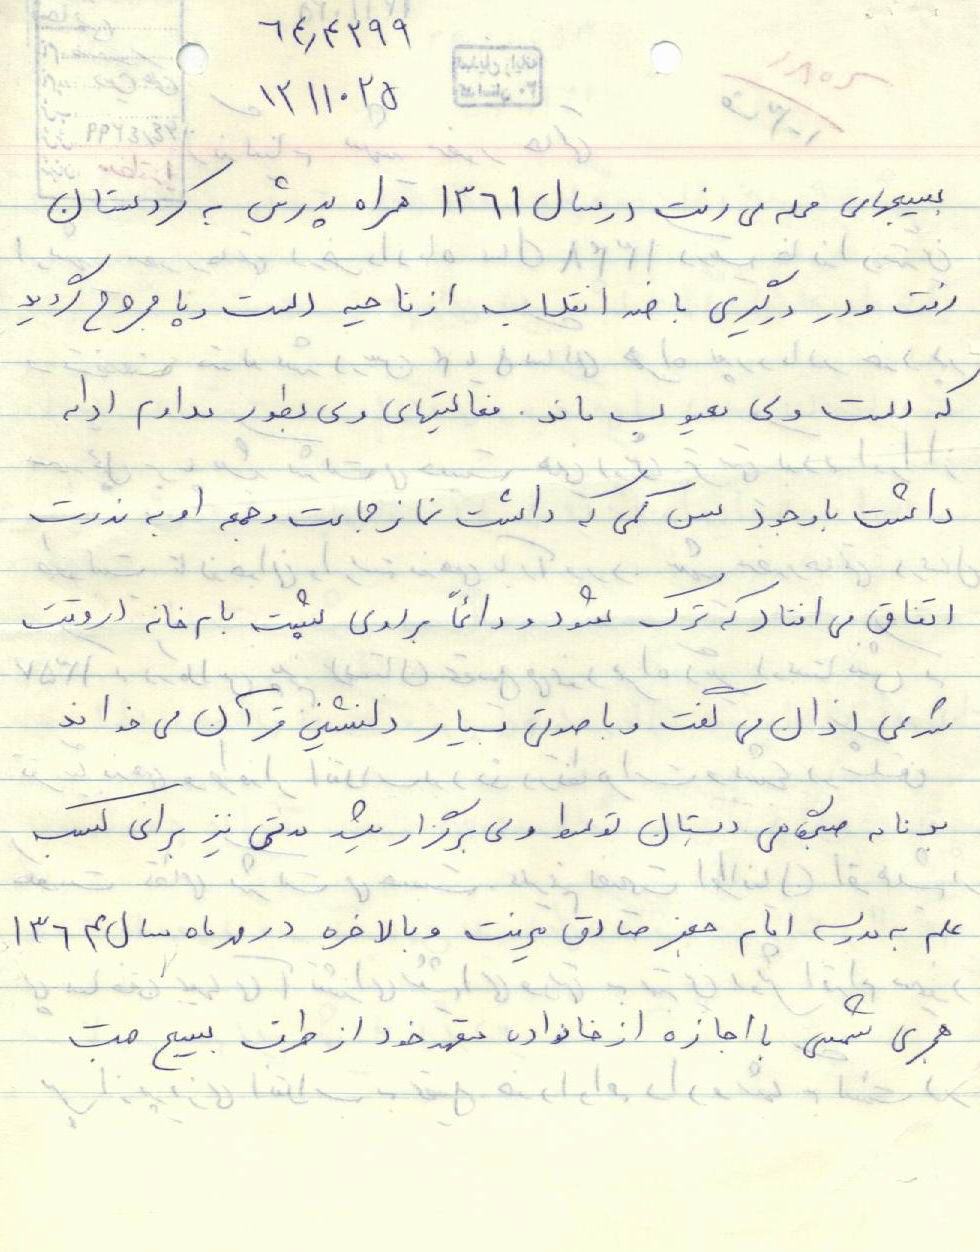 ٦٤٫٤٢٩٩
١٢١١٠٢٥
بسیجهای محله می رفت در سال ١٣٦١ همراه پدرش به کردستان
رفت و در درگیری با ضد انقلاب از ناحیه دست و پا مجروح گردید
که دست وی معیوب ماند. فعالیتهای وی بطور مداوم ادامه
داشت با وجود سن کمی که داشت نماز جماعت و جمعه او به ندرت
اتفاق می افتاد که ترک بشود و دائماً بر روی پشت بام خانه در وقت
شرعی اذان می گفت و با صوتی بسیار دلنشین قرآن می خواند
برنامه صبحگاهی دبستان توسط وی برگزار میشد مدتی نیز برای کسب
علم به مدرسه امام جعفر صادق میرفت و بالاخره در مهر ماه سال ١٣٦٤
هجری شمسی با اجازه از خانواده متعهد خود از طرف بسیج جهت